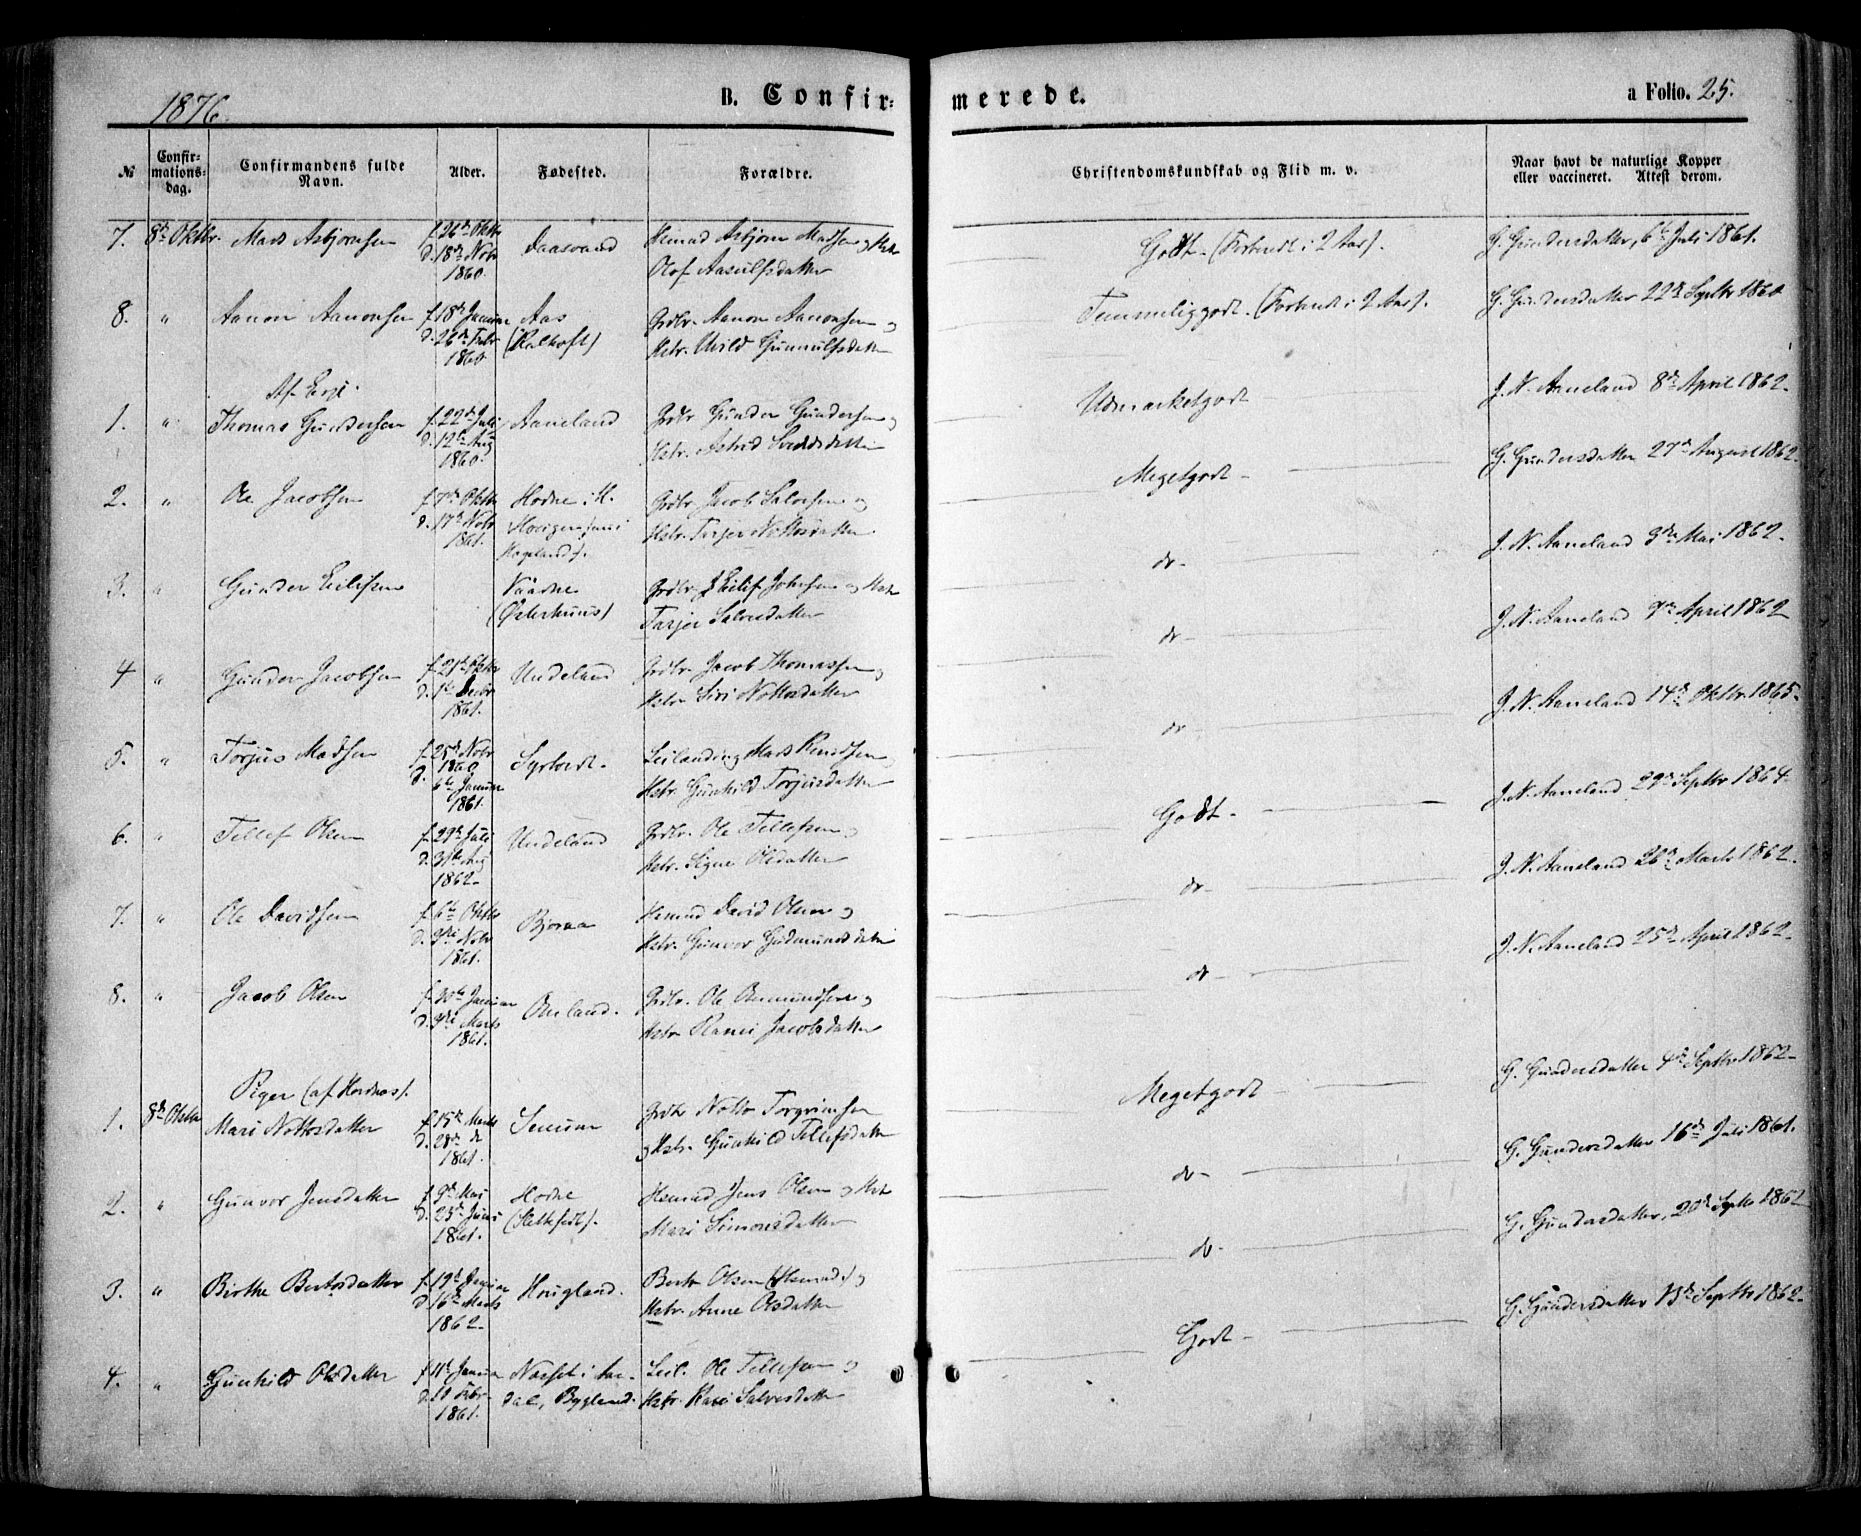 1876.
B. Confirmerede.
a Folio. 25.
№ Confirmationsdag. Confirmandens fulde Navn. Alder. Fødested. Forældre. Christendomskundskab og Flid m. v. Naar havt de naturlige Kopper eller vaccineret. Attest derom.
7. 8de Oktbr. Mads Asbjørnsen f. 26de Oktbr d. 18de Nobr 1860. Daasvand Husmd Asbjørn Madsen og Hstr Olof Aasulfsdatter Godt. (Forberedt i 2 Aar). G. Gundersdatter, 6te Juli 1861.
8. " Aanon Aanonsen f. 18de Januar d. 26de Febr 1860 Aas (Kalhoft) Grdbr. Aanon Aanonsen og Hstr. Uvild Gunnulfsdatter Temmeliggodt. (Forberedt i 2 Aar). G. Gundersdatter 22de Septbr 1860
Af Evje.
1. " Thomas Gundersen f. 22de Juli d. 12te Aug 1860. Aaneland Grdbr Gunder Gundersen og Hstr. Astrid Udmærketgodt J. N. Aaneland 8de April 1862.
2. " Ole Jacobsen f. 7de Oktbr d. 17de Nobr 1861. Hodne i H. Grdbr Jacob Salvesen og Hstr. Tarjer Nottosdatter Megetgodt G. Gundersdatter 27de August 1862.
3. " Gunder Eilifsen Vaadne (Østerhuus) Grdbr. Eilif Johnsen og Hstr Tarjer Salvesdatter do J. N. Aaneland 3die Mai 1862.
4 " Gunder Jacobsen f. 21de Oktbr d. 1ste Decbr 1861. Undeland Grdbr. Jacob Thomassen og Hstr Siri Nottosdatter do J. N. Aaneland 7de April 1862
5. " Torjus Madsen f. 25de Nobr 1860 d. 6te Januar 1861. Syrtveit. Leilænding Mads Knudsen Hstr. Gunhild Torjusdatter do J. N. Aaneland 14de Oktbr. 1865.
6. " Tellef Olsen f. 29de Juli d. 31te Aug 1862. Undeland Grdbr. Ole Tellefsen og Hstr. Signe Olsdatter Godt J. N. Aaneland 29de Septbr 1864.
7. " Ole Davidsen f. 6te Oktbr d. 3die Nobr 1861. Bjoraa Husmd David Olsen og Hstr. Gunvor Gudmundsdatter do J. N. Aaneland 26de Marts 1862.
8. " Jacob Olsen f. 30te Januar d. 3die Marts 1861. Omland. Grdbr. Ole Osmundsen og Hstr Ranei Jacobsdatter do J. N. Aaneland 25de April 1862.
Piger (af Hordnæs).
1. 8de Oktbr Mari Nottosdatter f. 15de Marts d. 28de do 1861. Senum Grdbr Notto Torgrimsen og Hstr. Gunhild Tellefsdatter Megetgodt G. Gundersdatter 4de Septbr 1862
2. " Gunvor Jensdatter f. 9de Mai d. 23de Juni 1861. Hodne Husmd Jens Olsen og Hstr Mari Simonsdatter do G. Gundersdatter 16de Juli 1861.
3. " Birthe Bertosdatter f. 19de Januar d. 16de Marts 1862. Hougland. Berto Olsen (Husmd) og Hstr. Anne Olsdatter do G. Gundersdatter, 20de Septbr 1862
4. " Gunhild Olsdatter f. 11te Januar d. 10 Febr. 1861. Næsset i Aardal, Bygland. Leil. Ole Tellefsen og Hstr. Kari Salvesdatter Godt G. Gundersdatter 13de Septbr 1862.